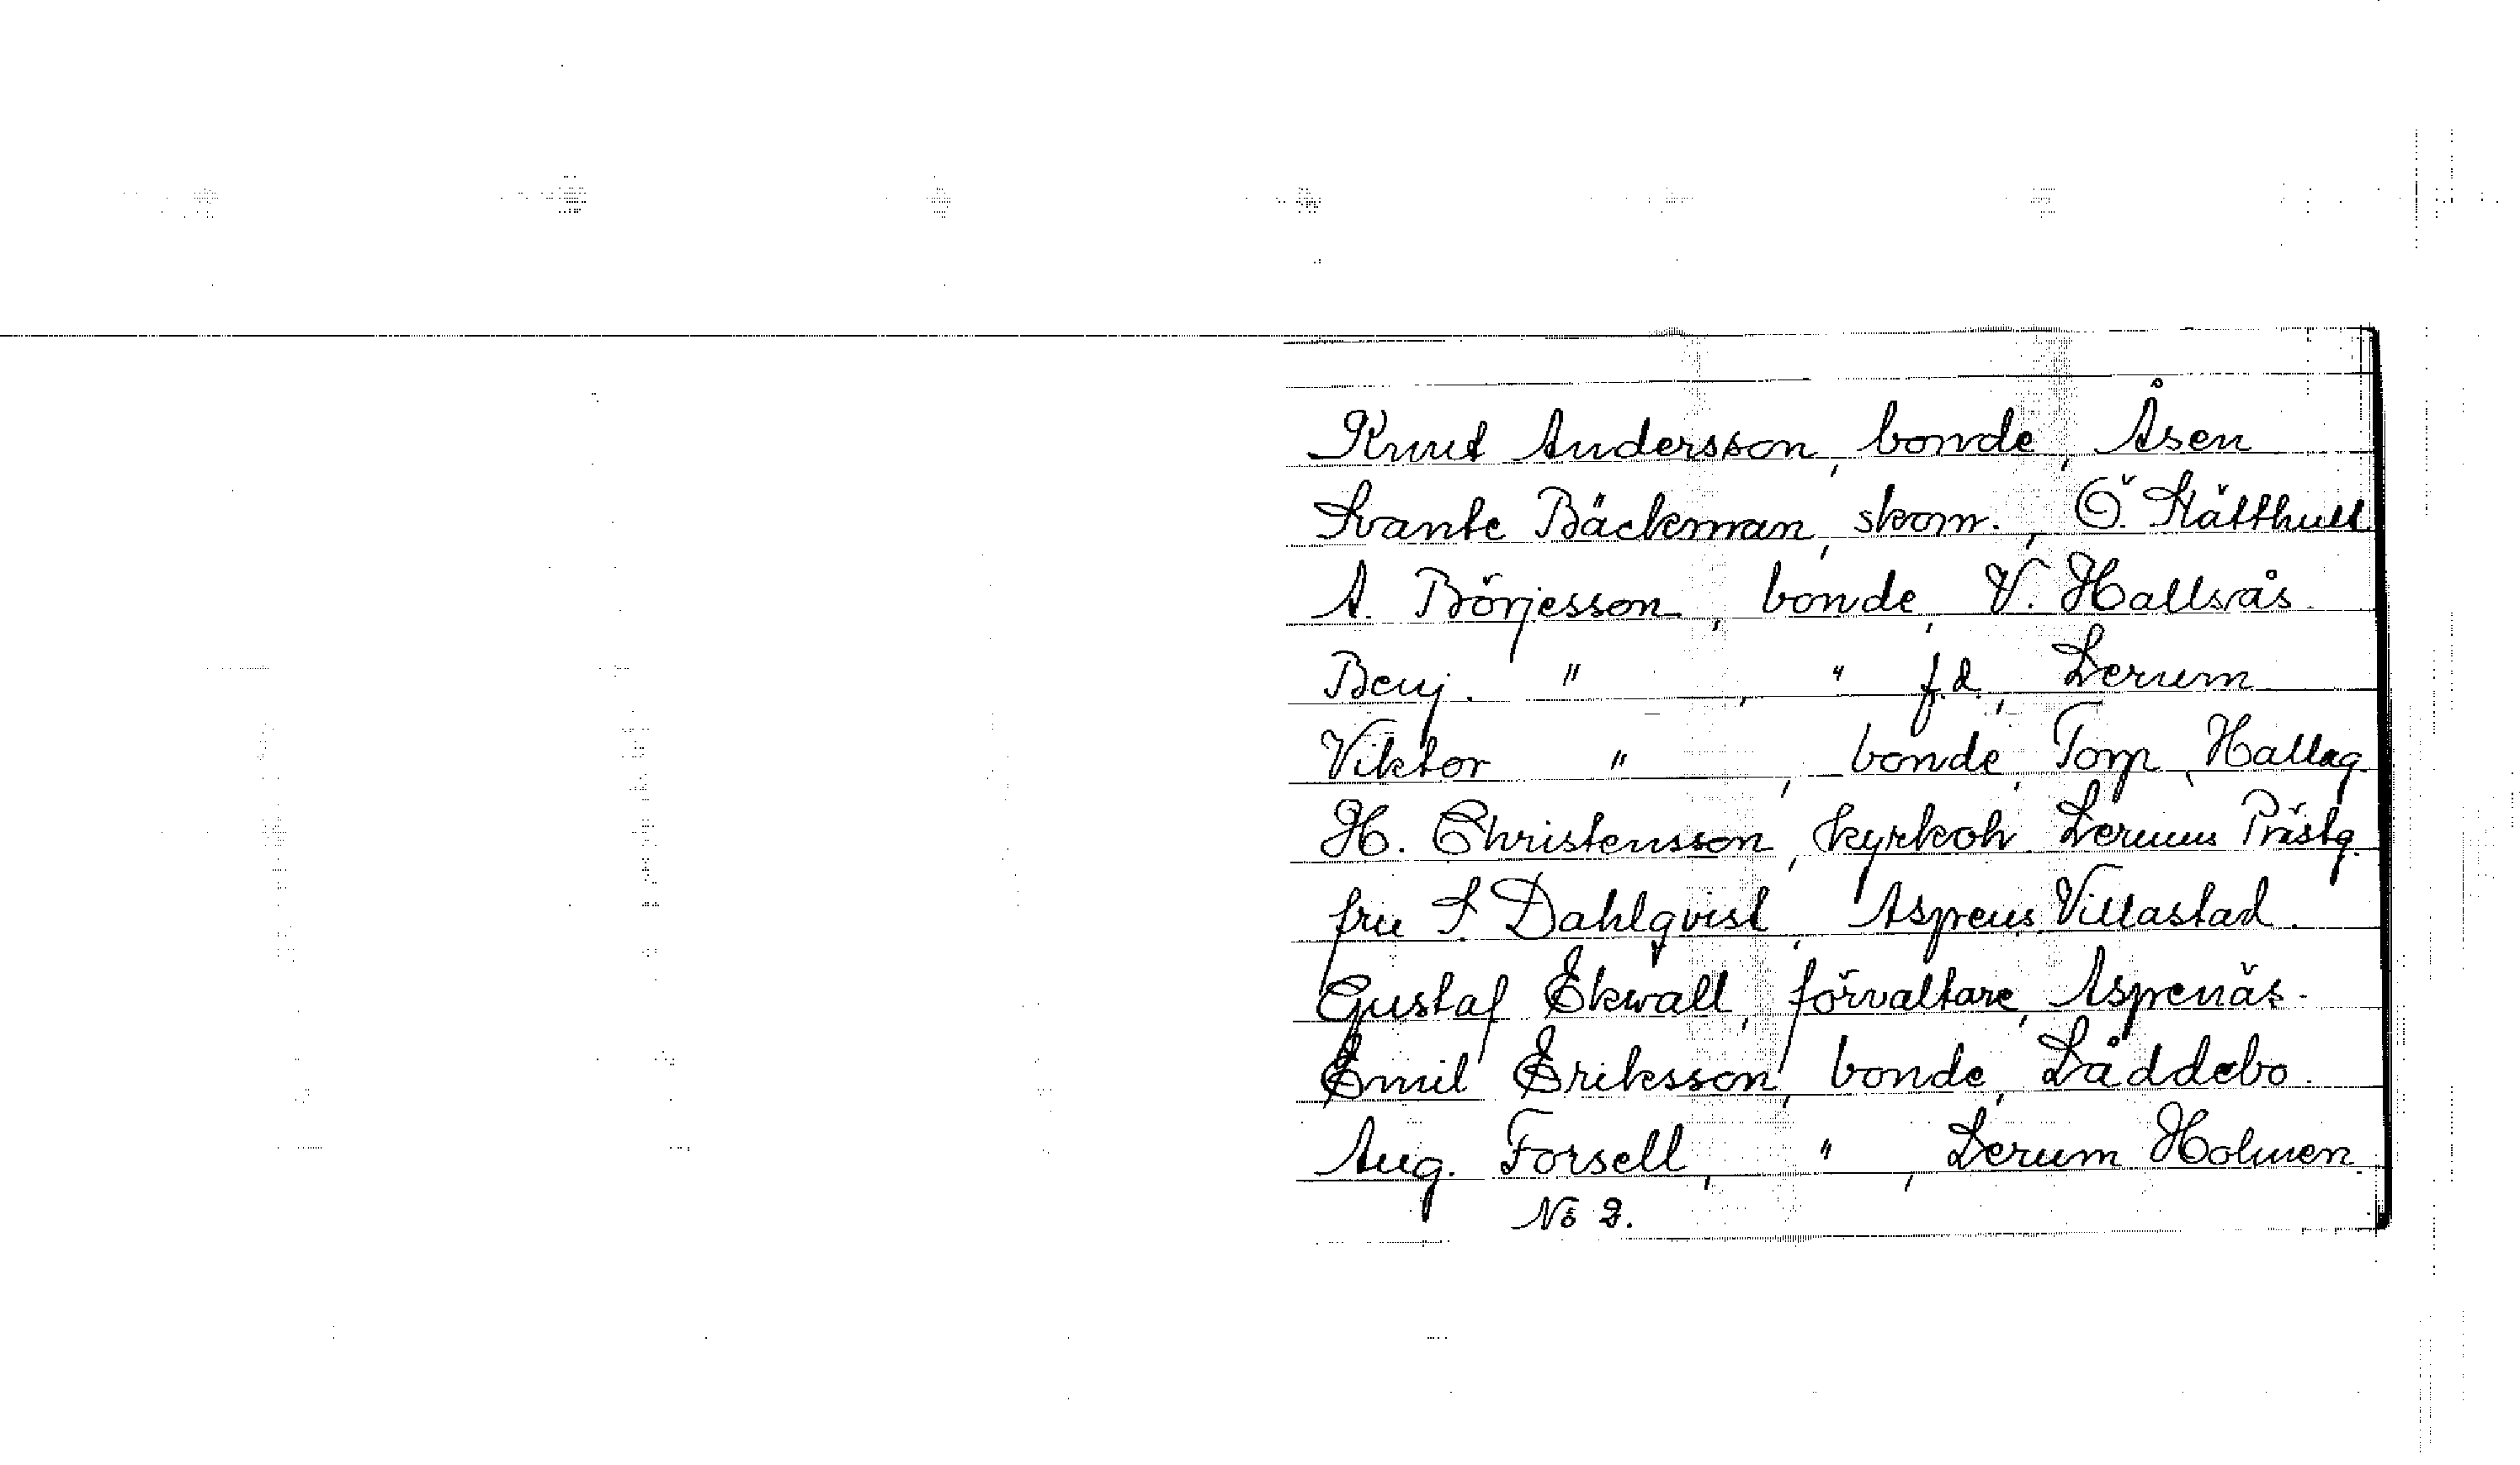 Knut Andersson, bonde, Åsen
Svante Bäckman, skom., Ö. Stätthult
A. Börjesson, bonde, V. Hallsås
Benj. " , " f.d., Lerum
Viktor " , bonde, Torp, Hallag.
H. Christensson, kyrkoh. Lerums Prästg.
fru S. Dahlqvist, Aspens Villastad.
Gustaf Ekwall, förvaltare, Aspenäs.
Emil Eriksson, bonde, Låddebo.
Aug. Forsell, " , Lerum Holmen.
No 2.